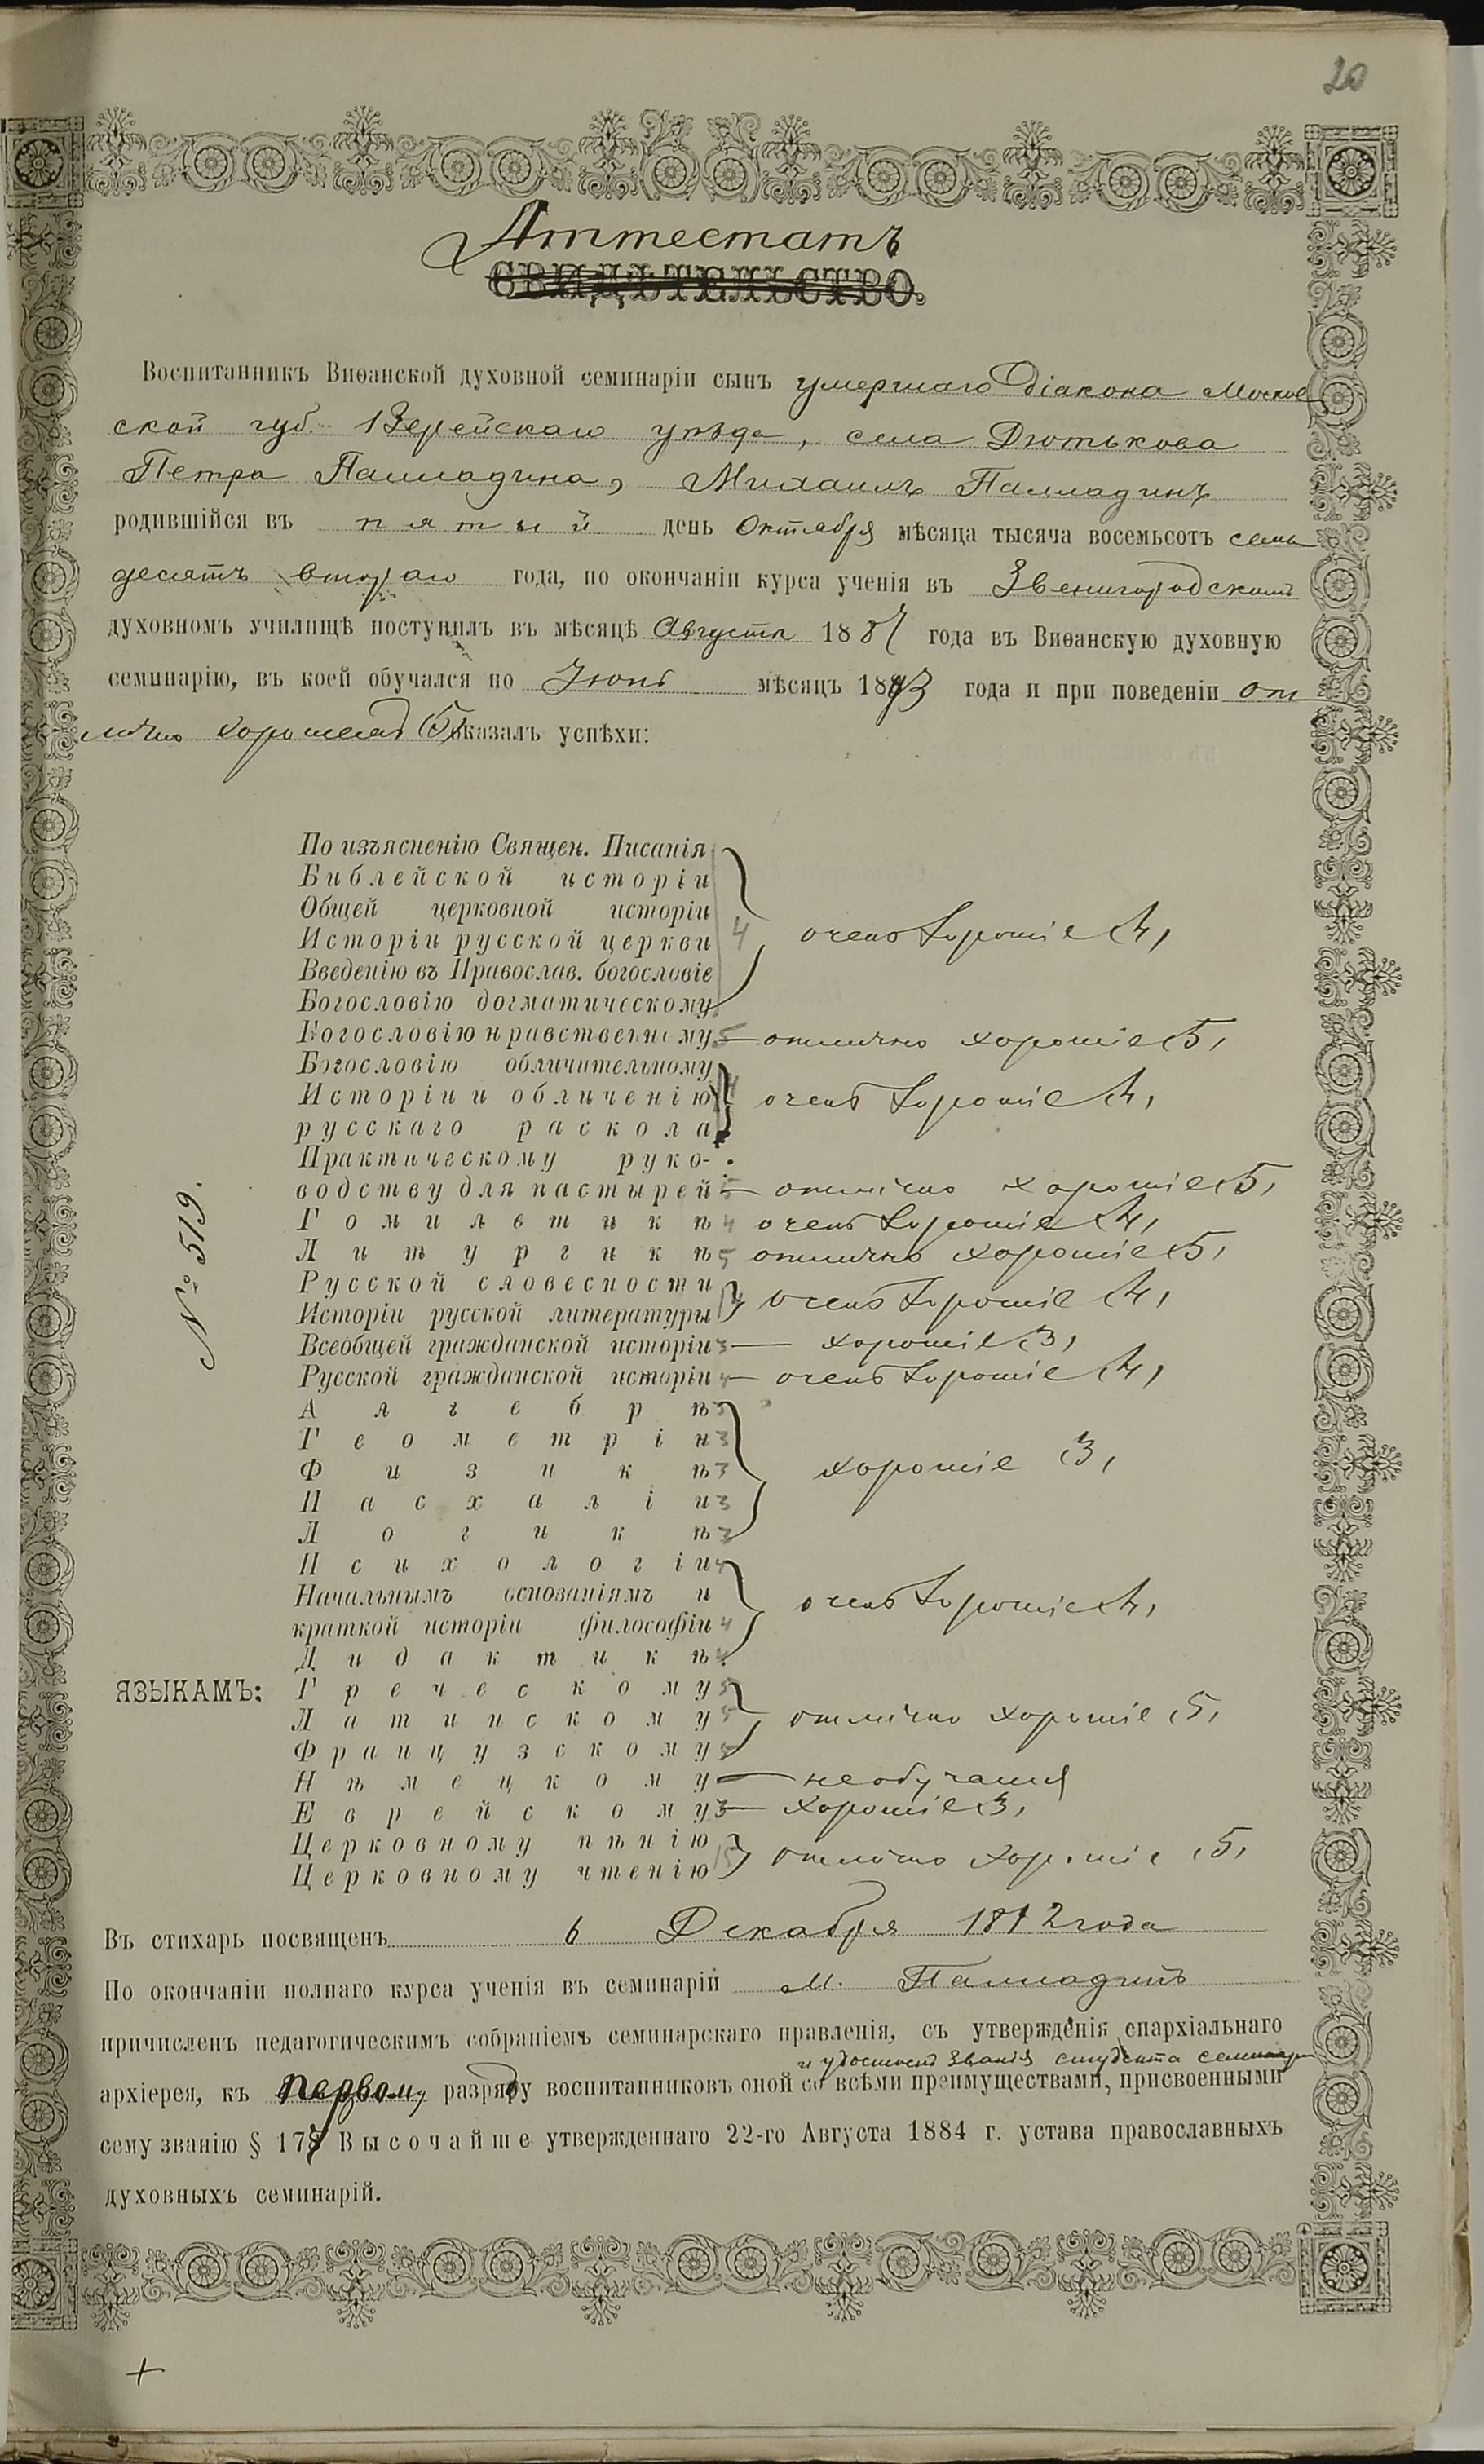 20
Аттестатъ
СВИДѢТЕЛЬСТВО.
Воспитанникъ Виѳанской духовной семинаріи сынъ умершаго діакона Москов
ской губ. Верейскаго уѣзда, села Дютькова
Петра Палладина, Михаилъ Палладинъ
родившійся въ пятый день Октября мѣсяца тысяча восемьсотъ семь
десятъ втораго года, по окончаніи курса ученія въ Звенигородскомъ
духовномъ училищѣ поступилъ въ мѣсяцѣ Августѣ 1887 года въ Виѳанскую духовную
семинарію, въ коей обучался по Іюнь мѣсяцъ 1893 года и при поведеніи от
лично хорошемъ (5) оказалъ успѣхи:
По изъясненію Священ. Писанія
Библейской исторіи
Общей церковной исторіи
Исторіи русской церкви 4 очень хорошіе (4)
Введенію въ Православ. богословіе
Богословію догматическому
Богословію нравственному 5 — отлично хорошіе (5)
Богословію обличительному
Исторіи и обличенію 4 очень хорошіе (4)
русскаго раскола
Практическому руко-
водству для пастырей 5 — отлично хорошіе (5)
Гомилетикѣ 4 очень хорошіе (4)
Литургикѣ 5 отлично хорошіе (5)
Русской словесности
Исторіи русской литературы 4 очень хорошіе (4)
Всеобщей гражданской исторіи 3 — хорошіе (3)
Русской гражданской исторіи 4 — очень хорошіе (4)
Алгебрѣ 3
Геометріи 3
Физикѣ 3 хорошіе (3)
Пасхаліи 3
Логикѣ 3
Психологіи 4
Начальнымъ основаніямъ и очень хорошіе (4)
краткой исторіи философіи 4
Дидактикѣ 4
ЯЗЫКАМЪ: Греческому 5
Латинскому 5 отлично хорошіе (5)
Французскому 5
Нѣмецкому — не обучался
Еврейскому 3 — хорошіе (3)
Церковному пѣнію
Церковному чтенію 5 отлично хорошіе (5)
№ 519.
Въ стихарь посвященъ 6 Декабря 1892 года
По окончаніи полнаго курса ученія въ семинаріи М. Палладинъ
причисленъ педагогическимъ собраніемъ семинарскаго правленія, съ утвержденія епархіальнаго
и удостоенъ званія студента семинаріи
архіерея, къ первому разряду воспитанниковъ оной со всѣми преимуществами, присвоенными
сему званію § 177 Высочайше утвержденнаго 22-го Августа 1884 г. устава православныхъ
духовныхъ семинарій.
+